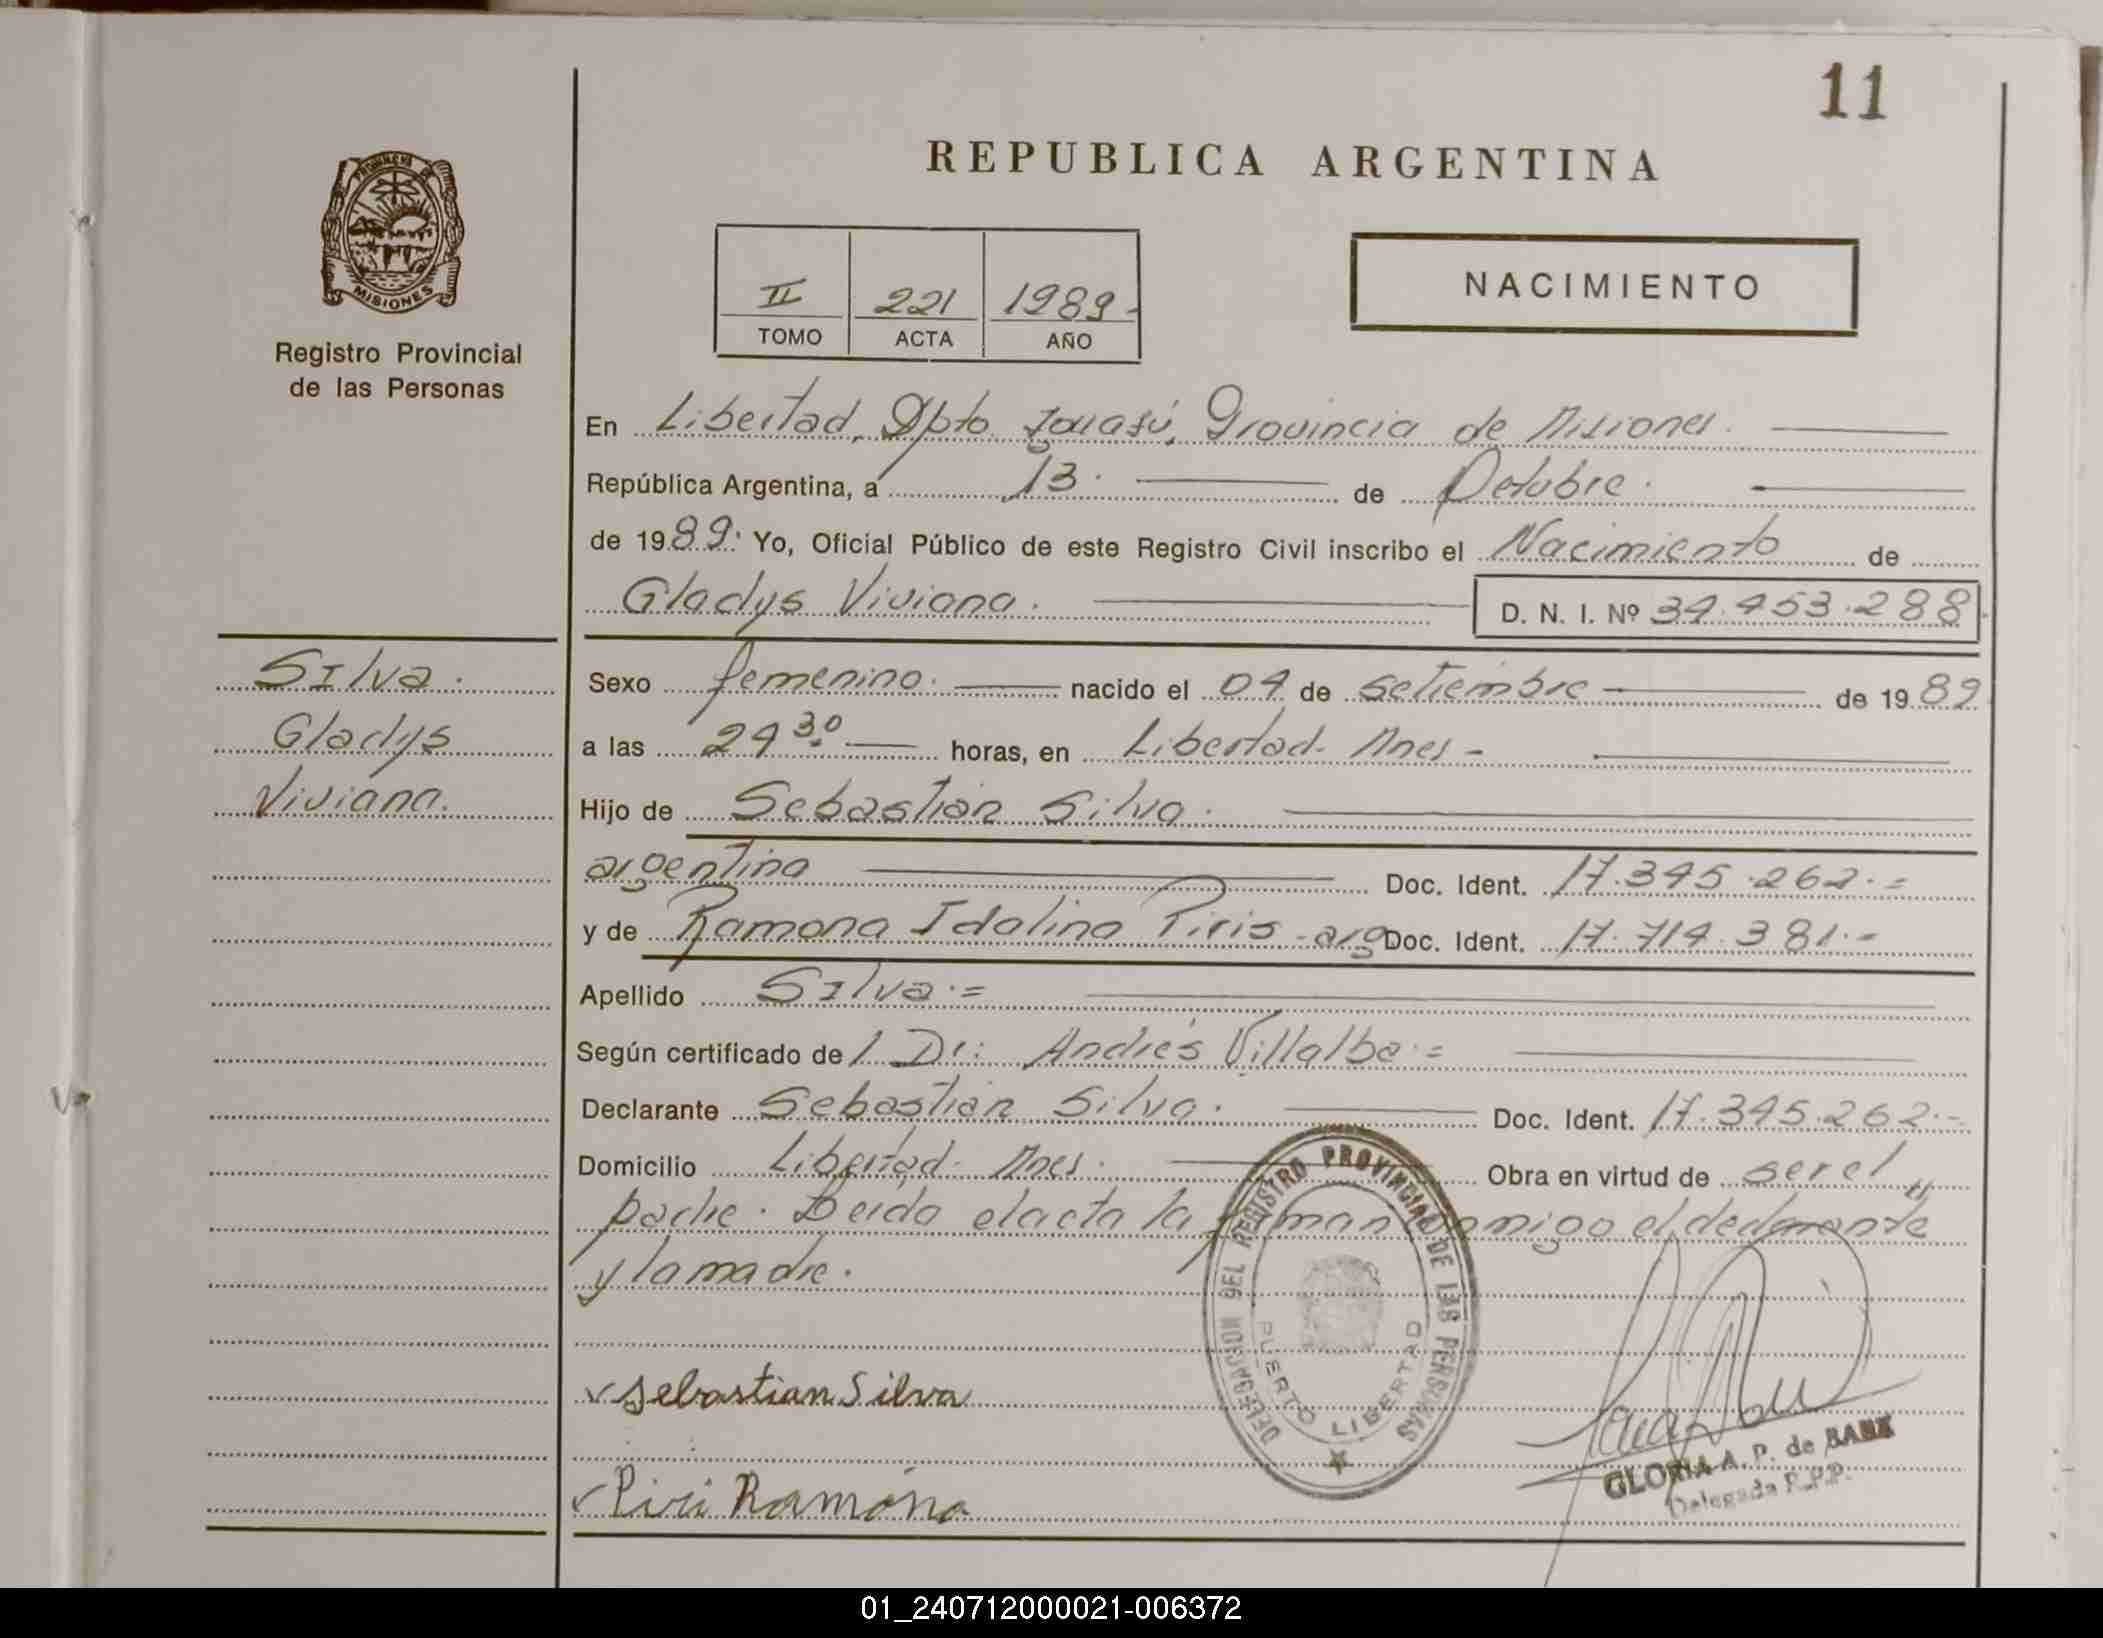 11
REPUBLICA ARGENTINA
PROVINCIA DE
MISIONES
Registro Provincial
de las Personas
II 221 1989-
TOMO ACTA AÑO
NACIMIENTO
En Libertad, Dpto. Iguasú, Provincia de Misiones.
República Argentina, a 13. de Octubre.
de 1989. Yo, Oficial Público de este Registro Civil inscribo el Nacimiento de
Gladys Viviana. D. N. I. Nº 34.453.288
Silva.
Gladys
Viviana.
Sexo femenino. nacido el 04 de setiembre de 1989
a las 24 30 horas, en Libertad- Mnes-
Hijo de Sebastián Silva.
argentina Doc. Ident. 17.345.262.=
y de Ramona Idalina Piris - arg Doc. Ident. 17.714.381.-
Apellido Silva.=
Según certificado de l Dr: Andrés Villalba.=
Declarante Sebastián Silva. Doc. Ident. 17.345.262.-
Domicilio Libertad- Mnes. Obra en virtud de ser el
padre. Leída el acta la firman conmigo el declarante
y la madre.
DELEGACION DEL REGISTRO PROVINCIAL DE LAS PERSONAS
PUERTO LIBERTAD
Sebastian Silva
Piri Ramona
GLORIA A. P. de
Delegada R.P.P.
01_240712000021-006372